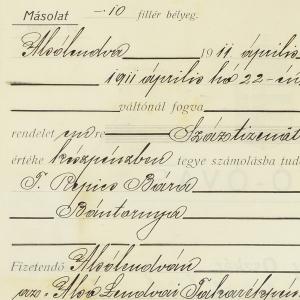 Másolat —.10 fillér bélyeg.
Alsólendva 1911 április
1911 április hó 22-én
váltónál fogva
rendelet en re Száztizenöt
értéke készpénzben tegye számolásba tud
T. Repics Bára
Bántornya
Fizetendő Alsólendván
Alsó Lendvai Takarékpén